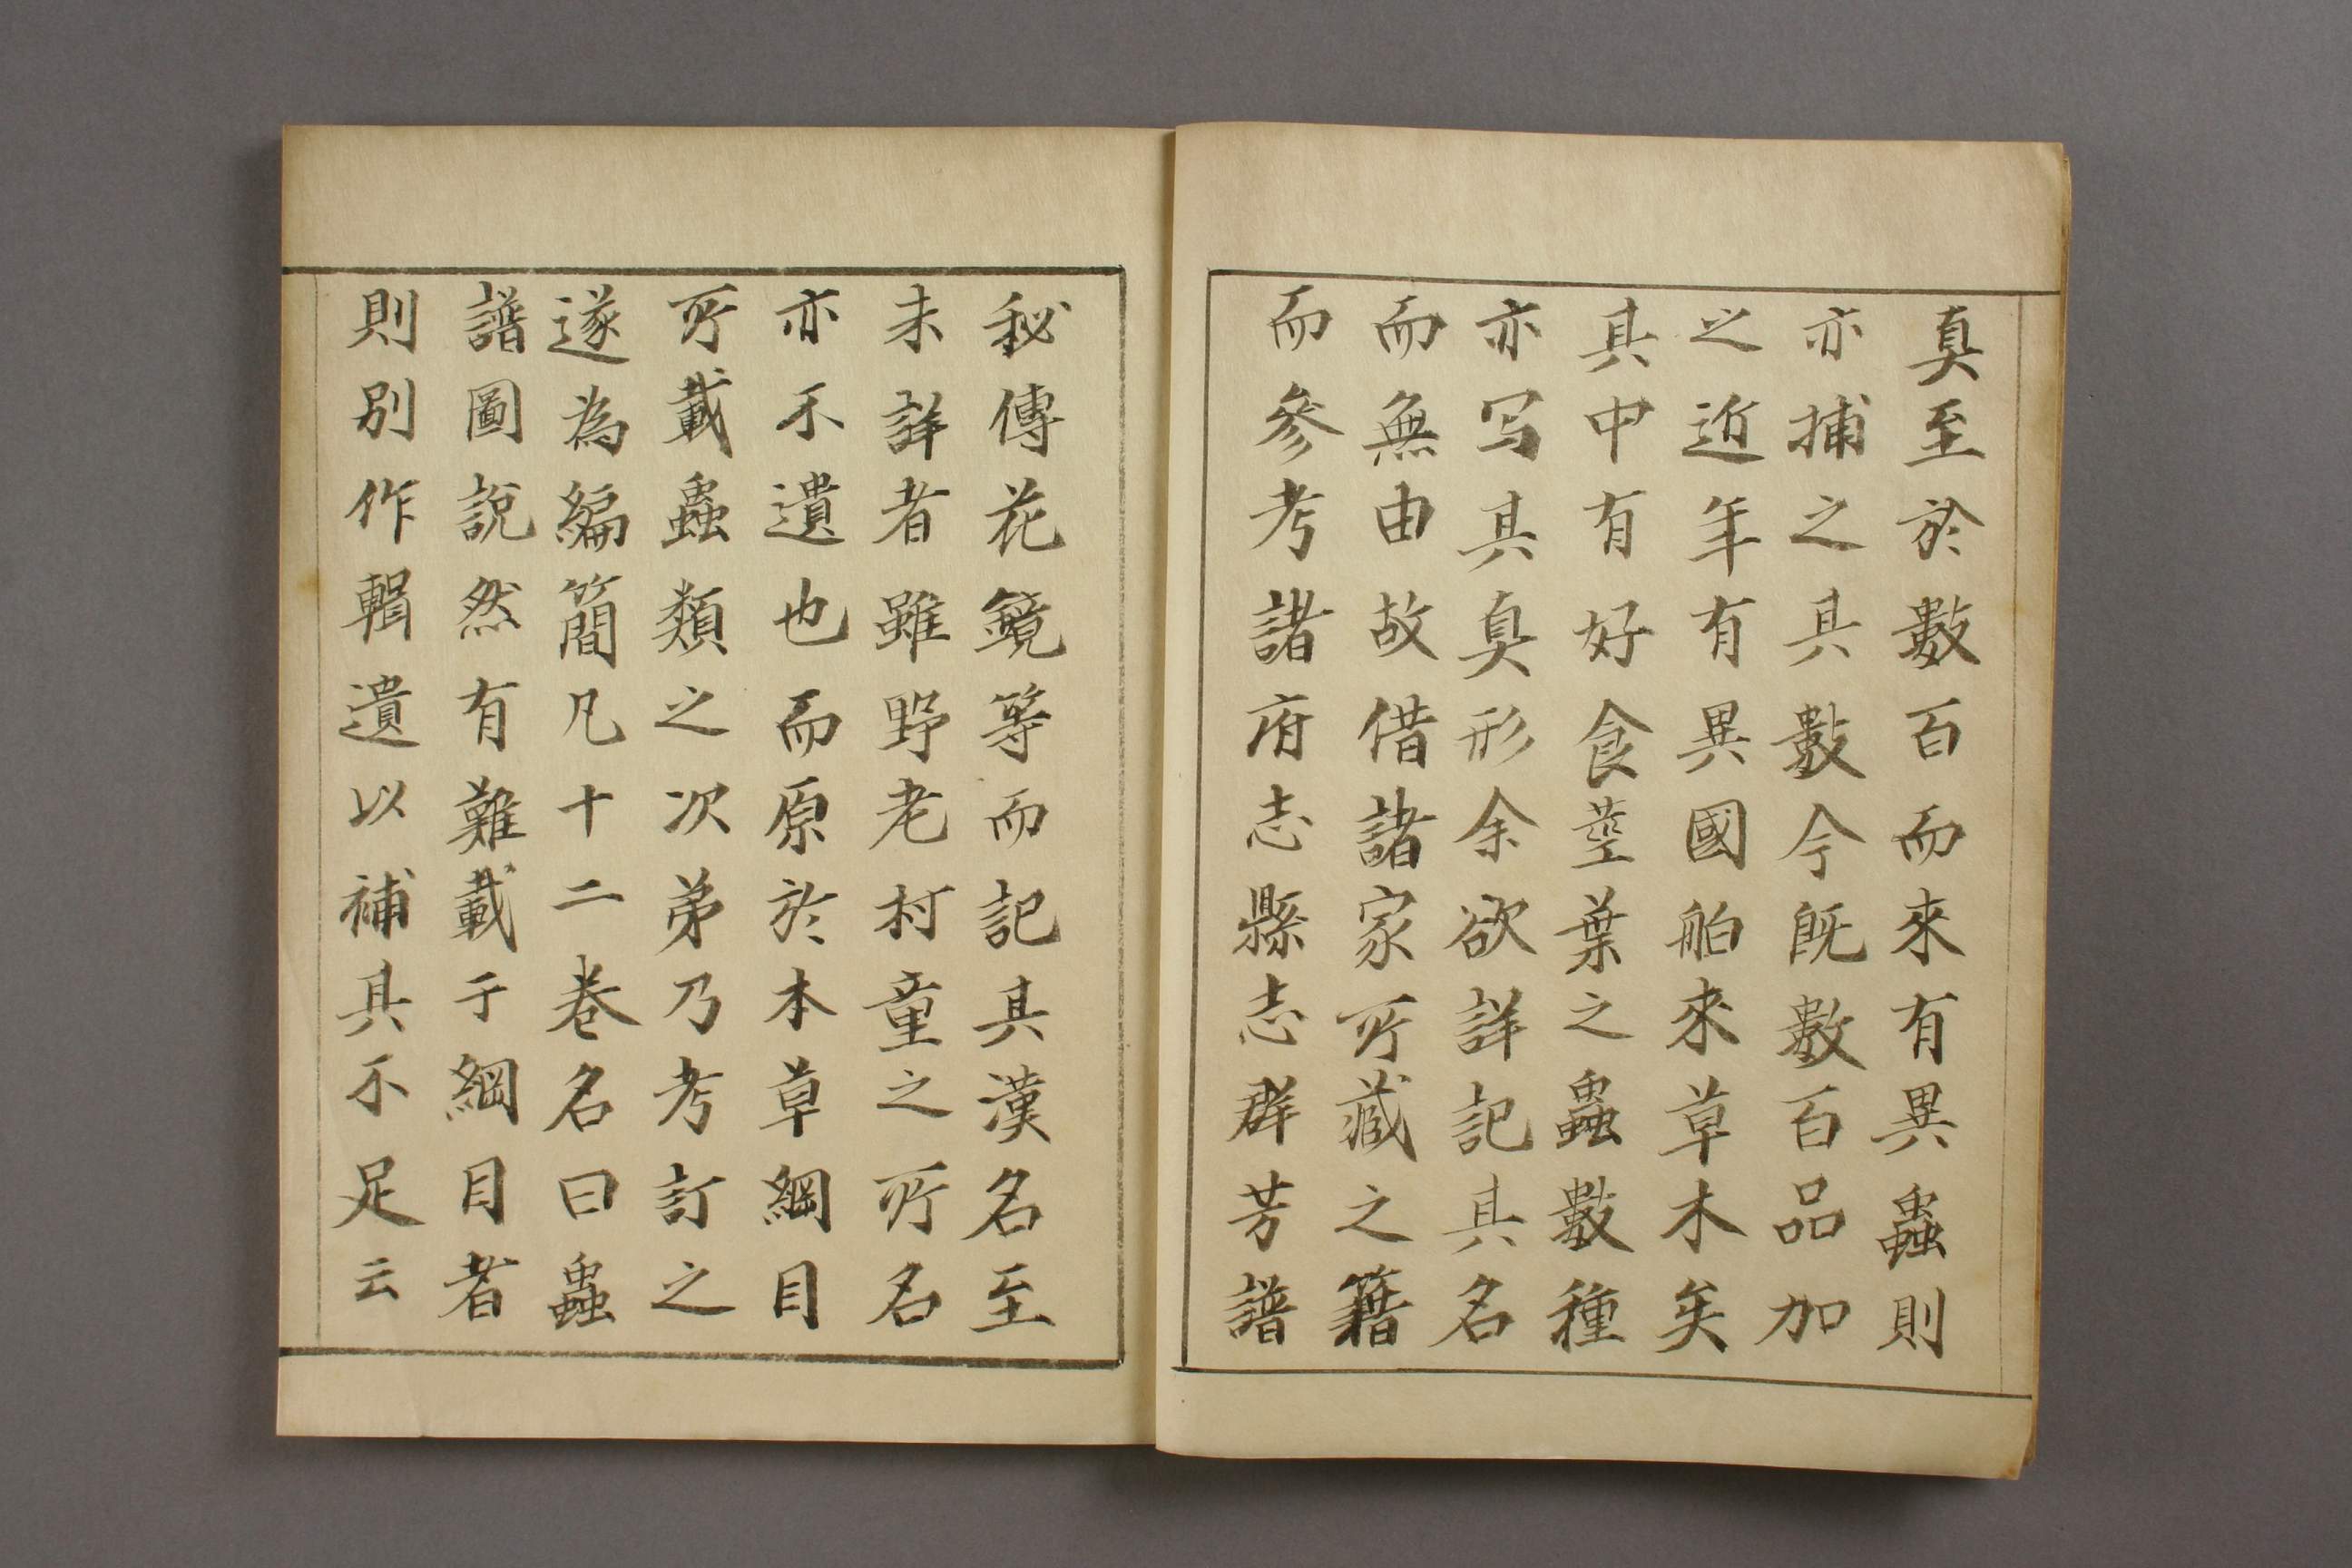 真至於數百而來有異蟲則
亦捕之其數今既數百品加
之近年有異國舶來草木矣
其中有好食莖葉之蟲數種
亦写其真形余欲詳記其名
而無由故借諸家所藏之籍
而參考諸府志縣志群芳譜
秘傳花鏡等而記其漢名至
未詳者雖野老村童之所名
亦不遺也而原於本草綱目
所載蟲類之次第乃考訂之
遂為編簡凡十二巻名曰蟲
譜圖說然有難載于綱目者
則別作輯遺以補其不足云